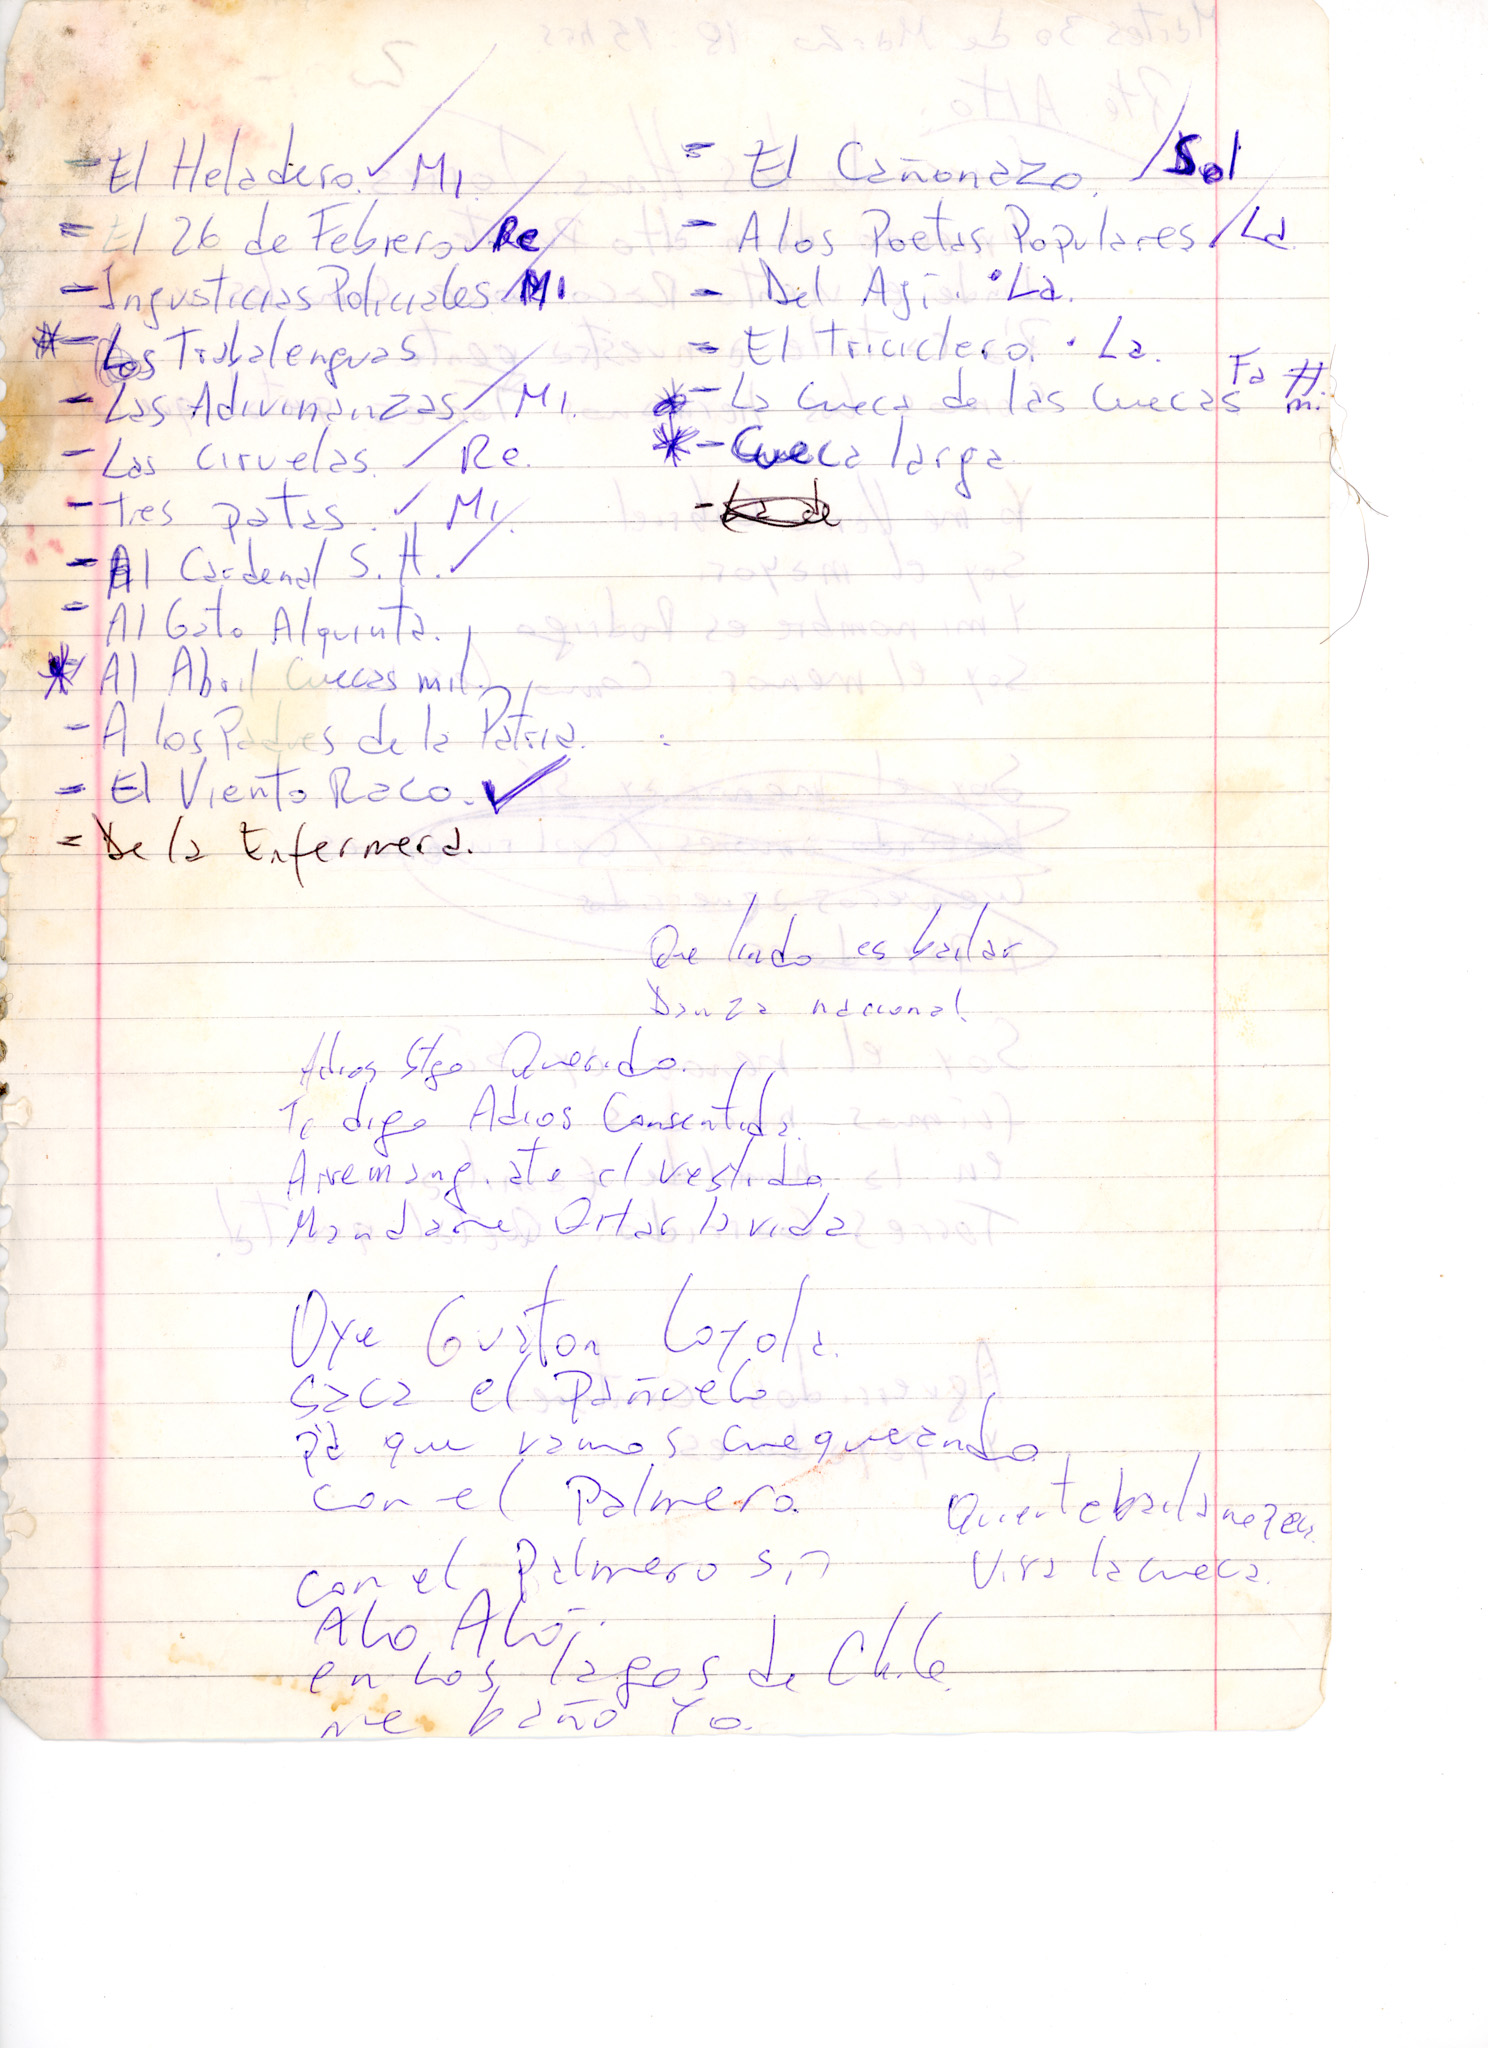 - El Heladero. ✓ Mi.
- El 26 de Febrero / Re
- Injusticias Policiales / Mi
* - Los Trabalenguas
- Las Adivinanzas / Mi.
- Las Ciruelas. / Re.
- tres patas. ✓ Mi.
- Al Cardenal S. H. ✓
- Al Gato Alquinta.
* Al Abril Cuecas mil.
- A los Padres de la Patria.
- El Viento Raco. ✓
= De la Enfermera.
= El Cañonazo. / Sol
- A los Poetas Populares / La
- Del Aji. • La.
- El Triciclero. • La.
* - La Cueca de las Cuecas Fa # m.
* - Cueca larga
Que lindo es bailar
Danza nacional.
Adios Stgo Querido.
Te digo Adios Consentida.
Arremangate el vestido
Mandame la vida
Oye Guaton Loyola.
saca el Pañuelo
pa que vamos cuequeando
con el Palmero.
Viva la cueca.
con el Palmero si,
Alo Aló,
en los lagos de Chile
me baño Yo.